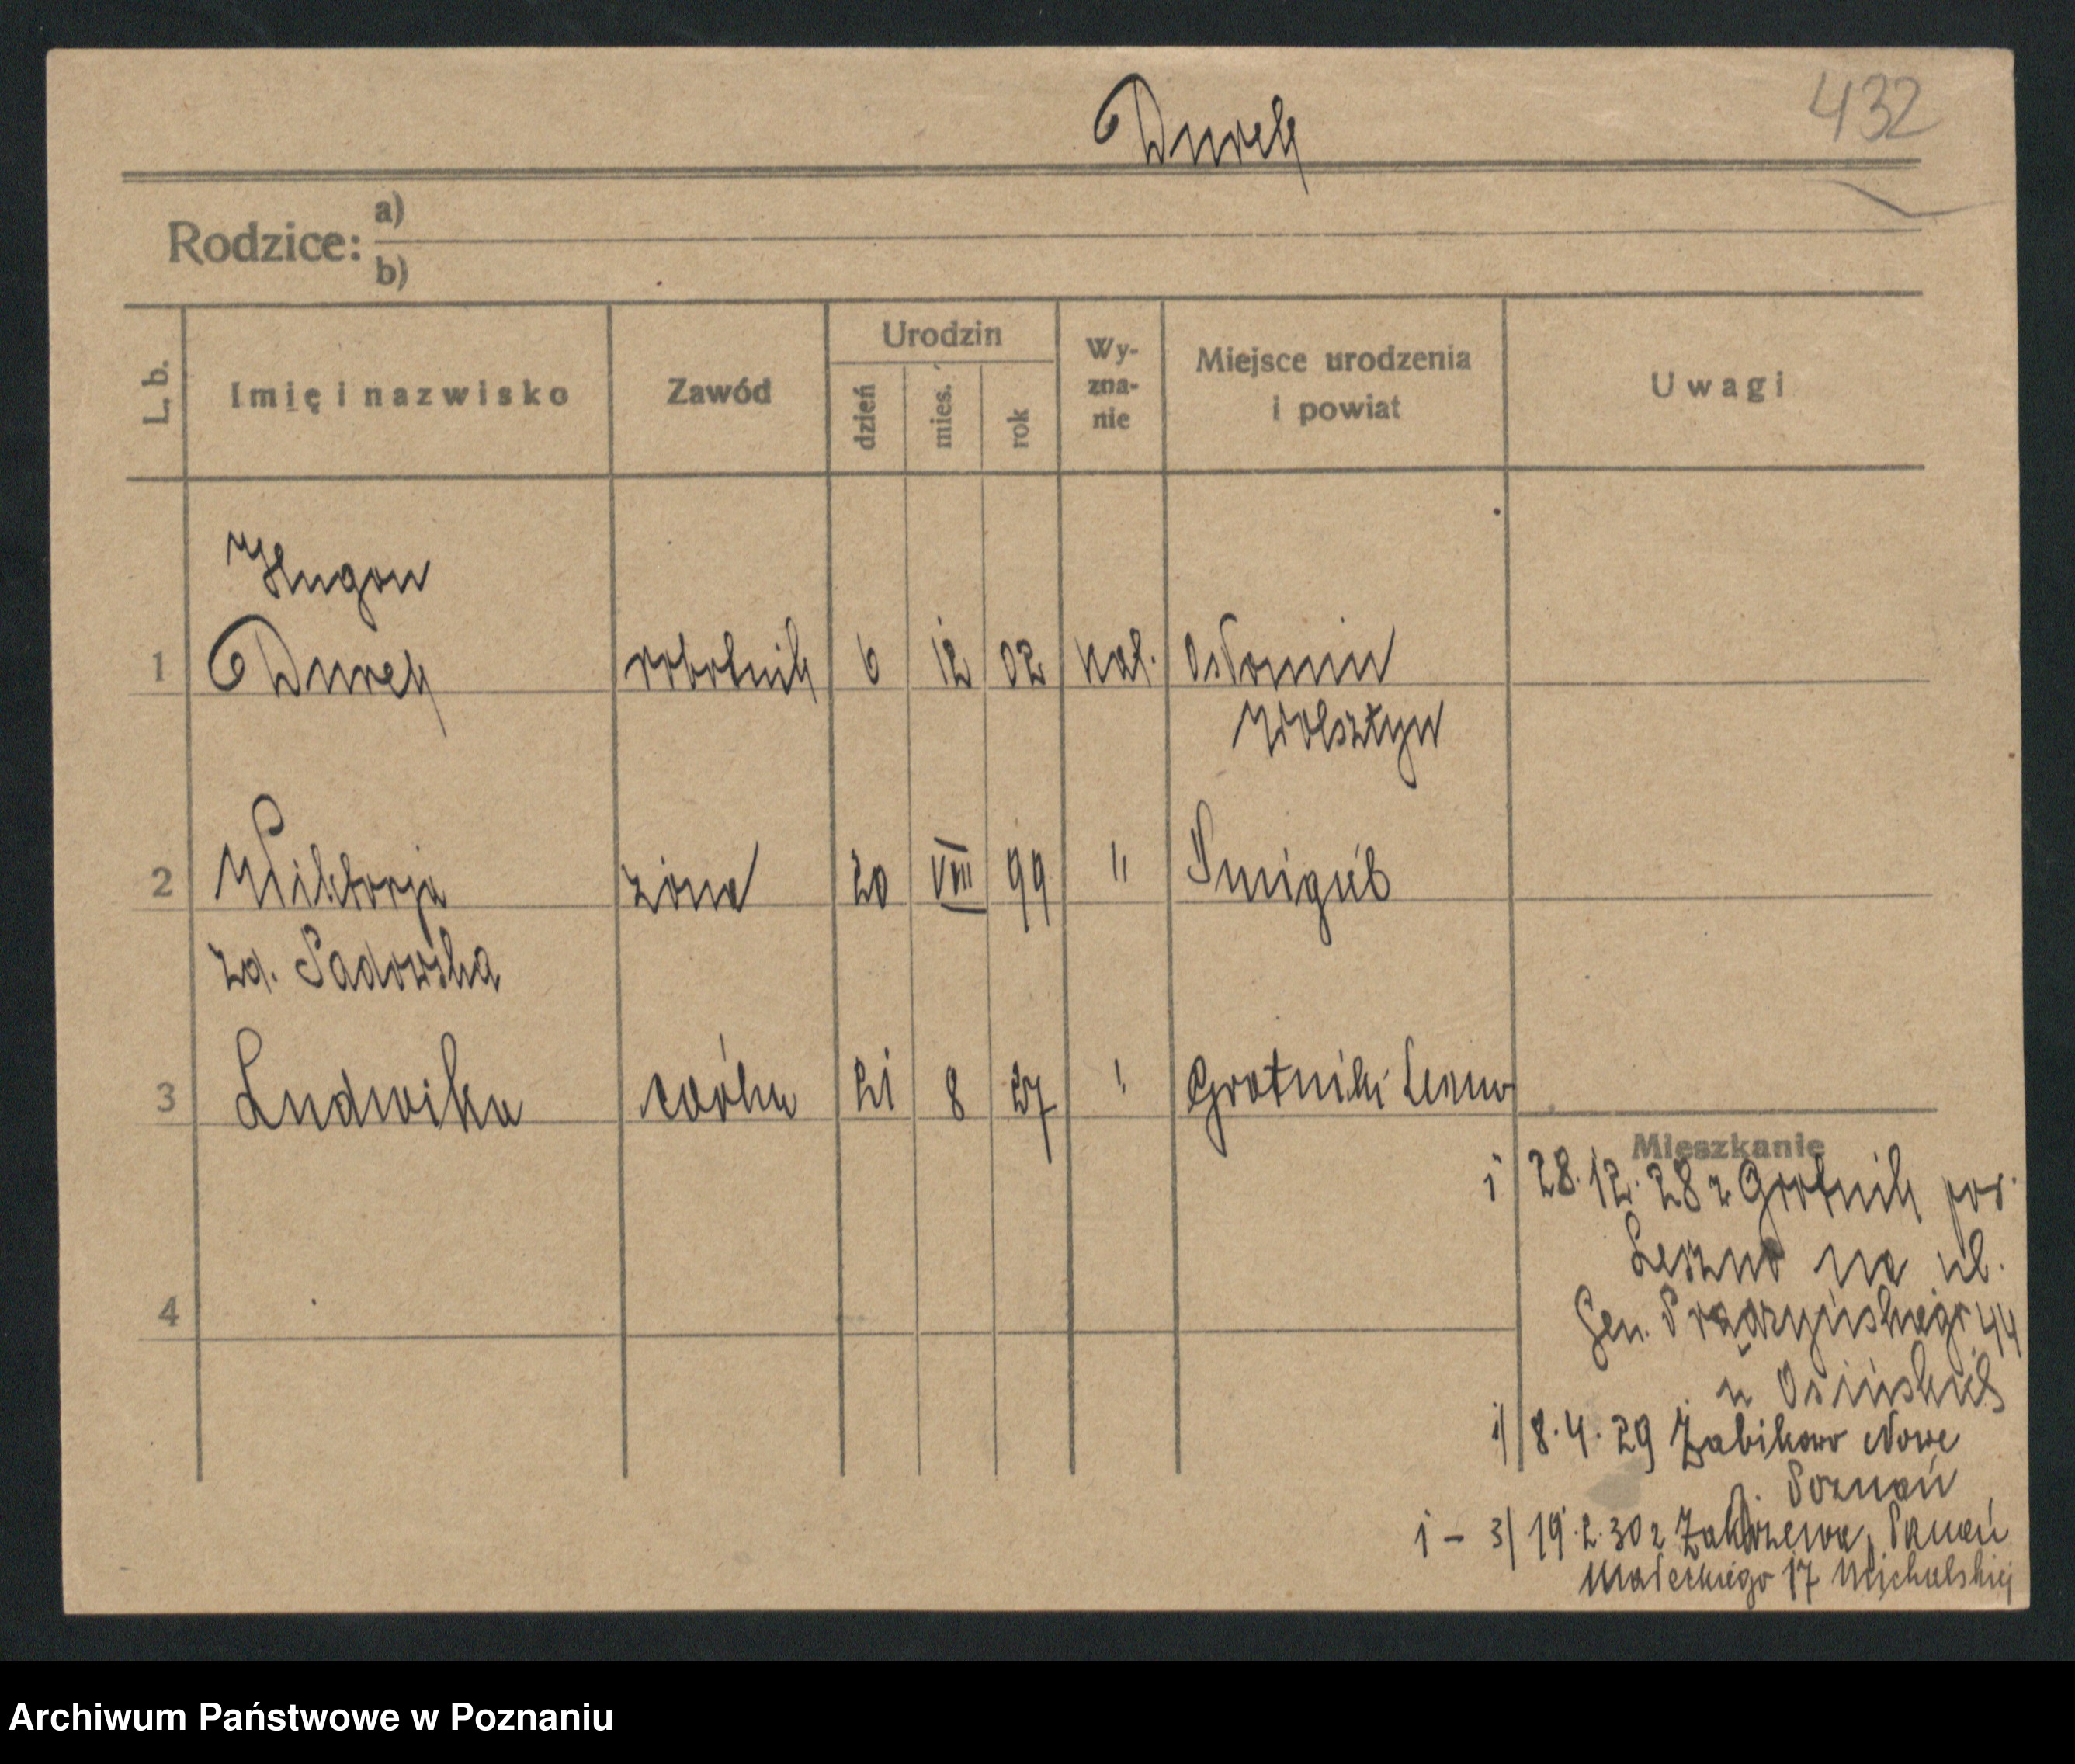 432
Durek
Rodzice: a)
b)
L. b. Imię i nazwisko Zawód Urodzin dzień mies. rok Wy-zna-nie Miejsce urodzenia i powiat Uwagi
Hugon
1 Durek robotnik 6 12 02 kat.
Wolsztyn
2 Wiktorja żona 20 VIII 99 " Śmigiel
zd. Sadowska
3 Ludwika córka 21 8 27 " Grotniki Leszno
Mieszkanie
1 28.12.28 z Grotnik pow.
Leszno na ul.
4
Gen. Prądzyńskiego 44
u
1) 8.4.29 Żabikowo Nowe
p. Poznań
1-3) 19.2.30 z Zakrzewa, Poznań
Małeckiego 17
Archiwum Państwowe w Poznaniu